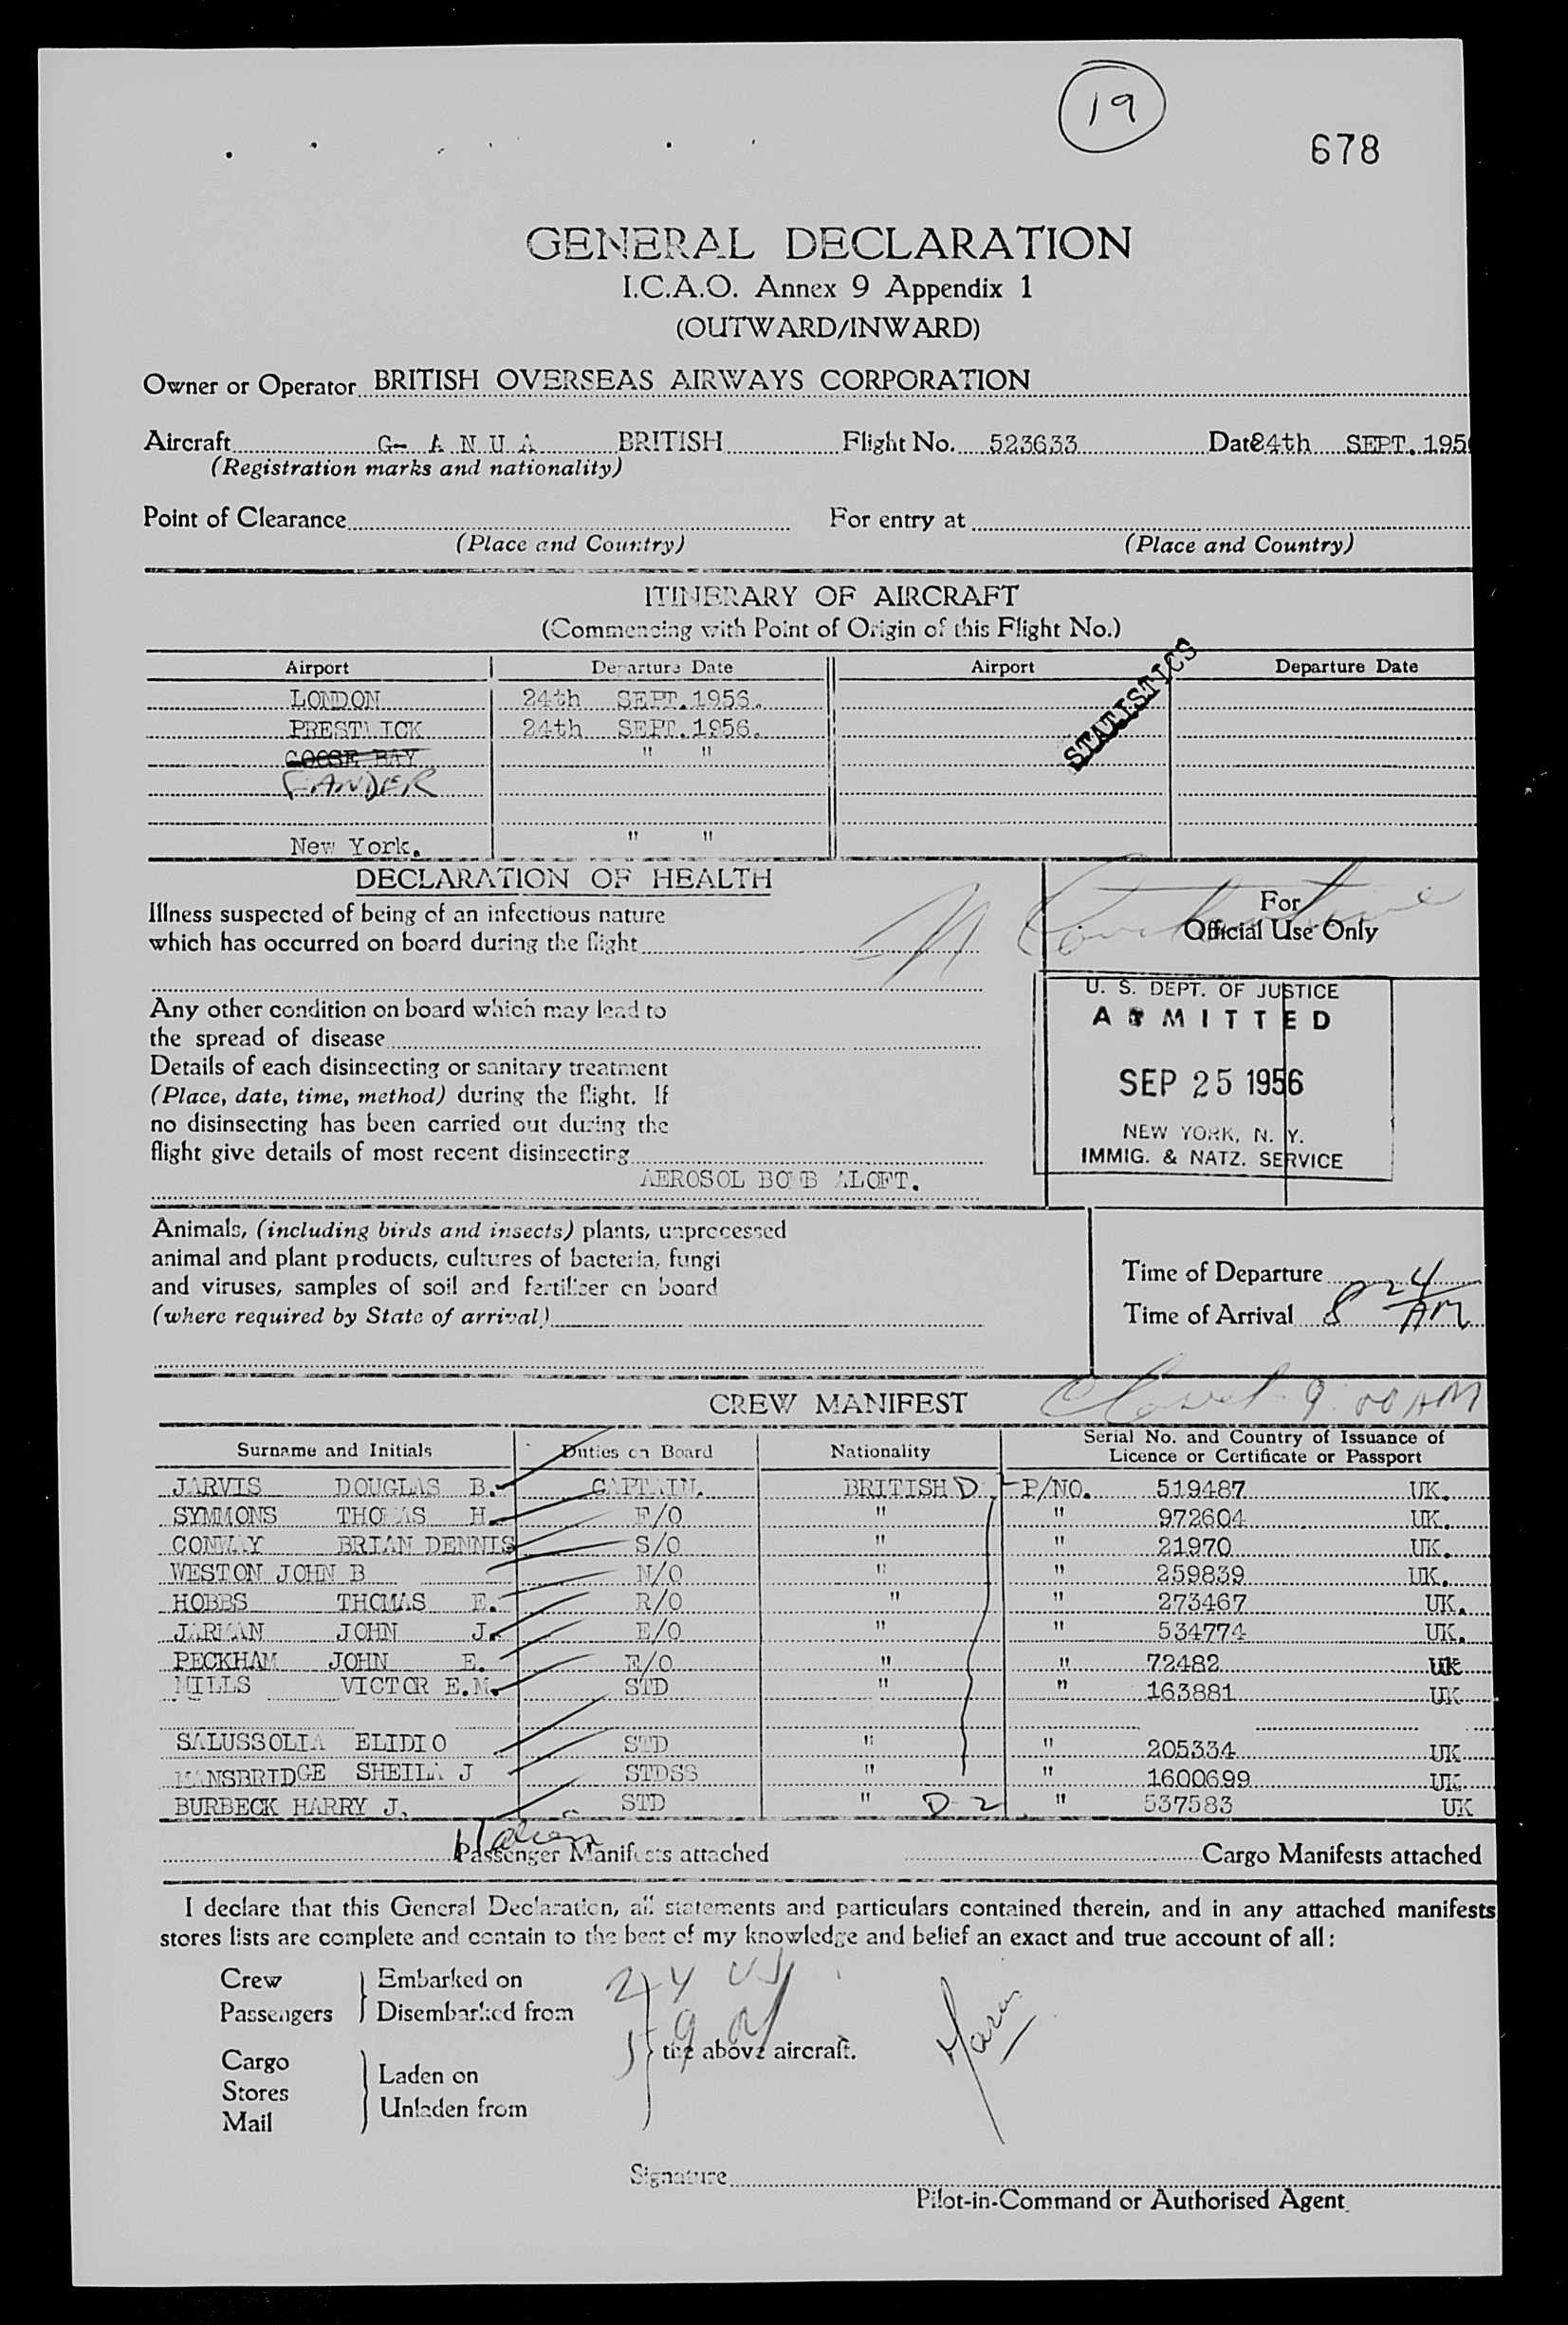 19
678
GENERAL DECLARATION
I.C.A.O. Annex 9 Appendix 1
(OUTWARD/INWARD)
Owner or Operator BRITISH OVERSEAS AIRWAYS CORPORATION
Aircraft G- A N U A BRITISH Flight No. 523633 Date 24th SEPT. 195
(Registration marks and nationality)
Point of Clearance For entry at
(Place and Country) (Place and Country)
ITINERARY OF AIRCRAFT
(Commencing with Point of Origin of this Flight No.)
Airport Departure Date Airport Departure Date
STATISTICS
LONDON 24th SEPT. 1956.
PRESTWICK 24th SEPT. 1956.
GOOSE BAY " "
GANDER
New York. " "
DECLARATION OF HEALTH
For
Official Use Only
Illness suspected of being of an infectious nature
which has occurred on board during the flight
Any other condition on board which may lead to
the spread of disease
Details of each disinsecting or sanitary treatment
(Place, date, time, method) during the flight. If
no disinsecting has been carried out during the
flight give details of most recent disinsecting
AEROSOL BOMB ALOFT.
U. S. DEPT. OF JUSTICE
ADMITTED
SEP 25 1956
NEW YORK, N. Y.
IMMIG. & NATZ. SERVICE
Animals, (including birds and insects) plants, unprocessed
animal and plant products, cultures of bacteria, fungi
and viruses, samples of soil and fertiliser on board
(where required by State of arrival)
Time of Departure
Time of Arrival 8 24 AM
CREW MANIFEST
9:00 AM
Surname and Initials Duties on Board Nationality Serial No. and Country of Issuance of
Licence or Certificate or Passport
JARVIS DOUGLAS B. CAPTAIN. BRITISH D P/NO. 519487 UK.
SYMMONS THOMAS H. F/O " " 972604 UK.
CONWAY BRIAN DENNIS S/O " " 21970 UK.
WESTON JOHN B N/O " " 259839 UK.
HOBBS THOMAS E. R/O " " 273467 UK.
JARMAN JOHN J. E/O " " 534774 UK.
PECKHAM JOHN E. E/O " " 72482 UK
MILLS VICTOR E.M. STD " " 163881 UK
SALUSSOLIA ELIDIO STD " " 205334 UK
MANSBRIDGE SHEILA J STDSS " " 1600699 UK
BURBECK HARRY J. STD " D-2 " 537583 UK
Passenger Manifests attached Cargo Manifests attached
I declare that this General Declaration, all statements and particulars contained therein, and in any attached manifests
stores lists are complete and contain to the best of my knowledge and belief an exact and true account of all:
Crew Embarked on
Passengers Disembarked from
the above aircraft.
Cargo Laden on
Stores
Mail Unladen from
Signature
Pilot-in-Command or Authorised Agent